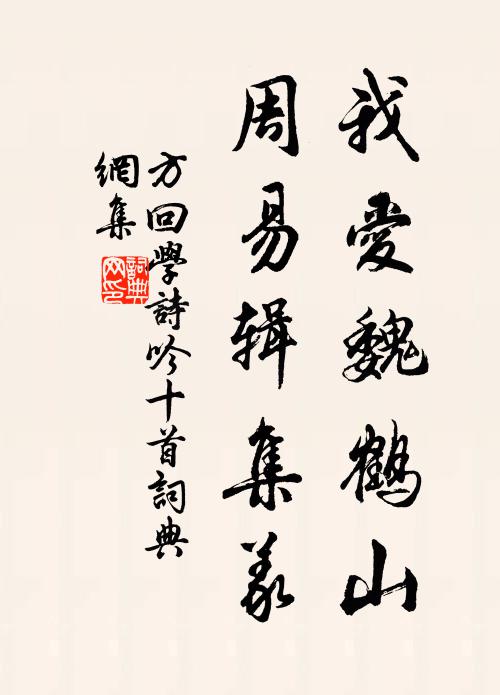 我愛魏鶴山
周易輯集義
方回學詩吟十首詞典
網集
詞典網印